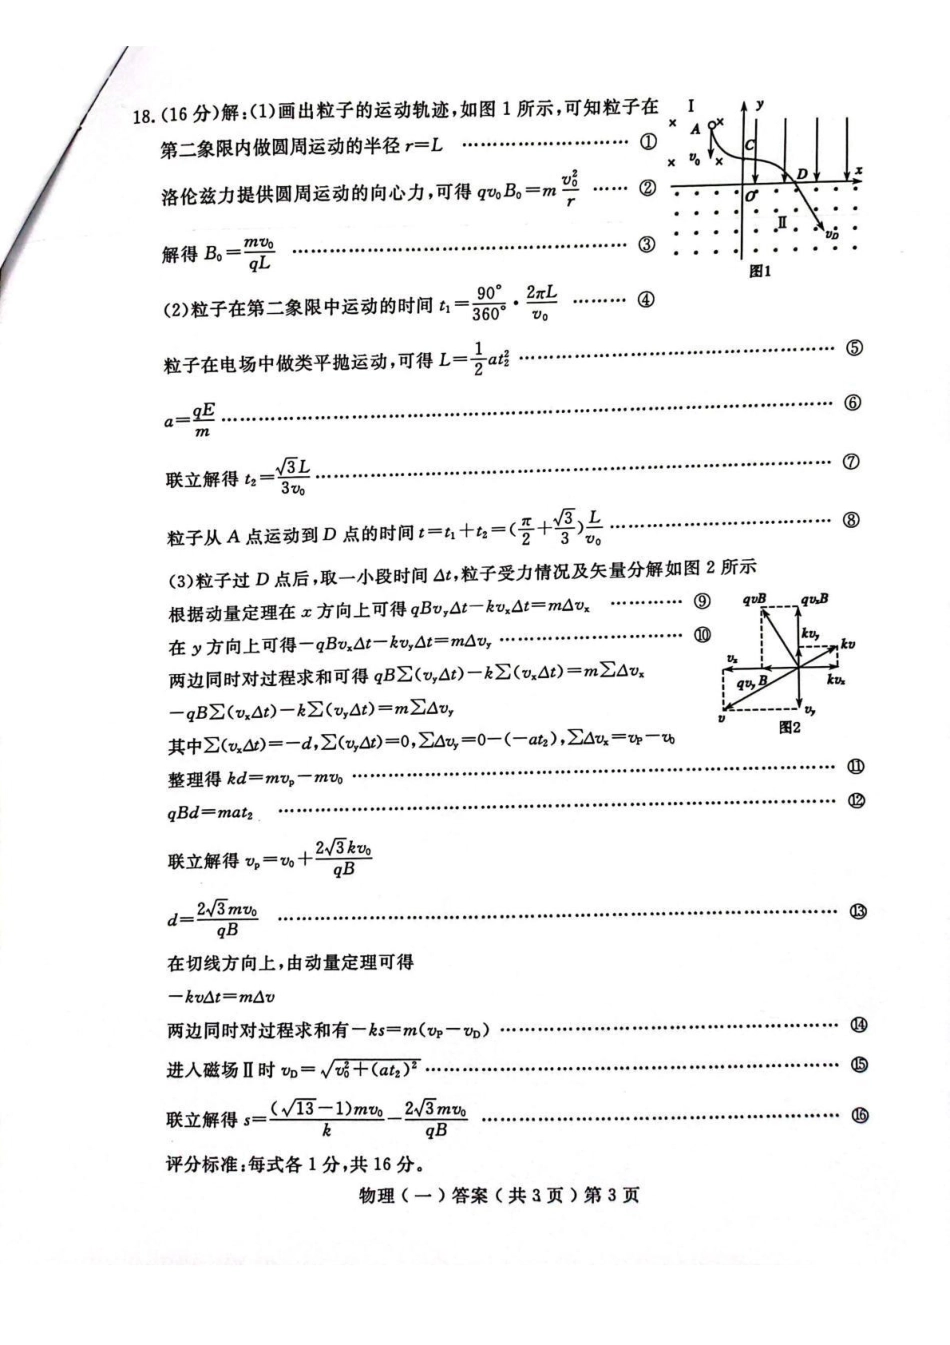 18.(16分)解:(1)画出粒子的运动轨迹,如图1所示,可知粒子在
第二象限内做圆周运动的半径r=L ………………………… ①
洛伦兹力提供圆周运动的向心力,可得 qv₀B₀=m v₀²/r …… ②
解得 B₀=mv₀/qL ………………………… ③
(2)粒子在第二象限中运动的时间 t₁=90°/360°·2πL/v₀ ……… ④
粒子在电场中做类平抛运动,可得 L=1/2 at₂² ………………………… ⑤
a=qE/m ………………………… ⑥
联立解得 t₂=√3L/3v₀ ………………………… ⑦
粒子从A点运动到D点的时间 t=t₁+t₂=(π/2+√3/3)L/v₀ ………………………… ⑧
(3)粒子过D点后,取一小段时间Δt,粒子受力情况及矢量分解如图2所示
根据动量定理在x方向上可得 qBvᵧΔt-kvₓΔt=mΔvₓ ………… ⑨
在y方向上可得-qBvₓΔt-kvᵧΔt=mΔvᵧ ………………………… ⑩
两边同时对过程求和可得 qB∑(vᵧΔt)-k∑(vₓΔt)=m∑Δvₓ
-qB∑(vₓΔt)-k∑(vᵧΔt)=m∑Δvᵧ
其中∑(vₓΔt)=-d,∑(vᵧΔt)=0,∑Δvᵧ=0-(-at₂),∑Δvₓ=vP-v₀
整理得 kd=mvₚ-mv₀ ………………………… ⑪
qBd=mat₂ ………………………… ⑫
联立解得 vₚ=v₀+2√3kv₀/qB
d=2√3mv₀/qB ………………………… ⑬
在切线方向上,由动量定理可得
-kvΔt=mΔv
两边同时对过程求和有-ks=m(vP-vD) ………………………… ⑭
进入磁场Ⅱ时 vD=√(v₀²+(at₂)²) ………………………… ⑮
联立解得 s=(√13-1)mv₀/k-2√3mv₀/qB ………………………… ⑯
评分标准:每式各1分,共16分。
物理(一)答案(共3页)第3页
I
y
A
v₀
C
D
x
O
Ⅱ
vD
图1
qvB
qvₓB
kvᵧ
kv
vₓ
qvᵧB
kvₓ
v
vᵧ
图2